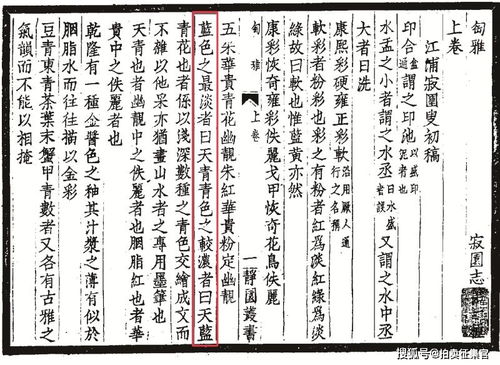 匋雅
寂園志
上卷
江浦寂園叟初稿
印合盒通謂之印池以盛印泥者也
水盂之小者謂之水丞 又謂之水中丞
大者曰洗
康熙彩硬雍正彩軟沿用厰人通行之名稱
軟彩者粉彩也彩之有粉者紅為淡紅綠為淡
綠故曰軟也惟藍黄亦然
康彩恢奇雍彩佚麗戈甲恢奇花鳥佚麗
匋雅 上卷 一 靜園叢書
五采華貴青花幽靚朱紅華貴粉定幽靚
藍色之最淡者曰天青青色之較濃者曰天藍
青花也者係以淺深數種之青色交繪成文而
不雜以他采亦猶畫山水者之專用墨筆也
天青也者幽靚中之佚麗者也胭脂紅也者華
貴中之佚麗者也
乾隆有一種金醬色之釉其汁漿之薄有似於
胭脂水而往往描以金彩
豆青東青茶葉末蟹甲青數者又各有古雅之
氣韻而不能以相掩
搜狐号@拍卖征集官